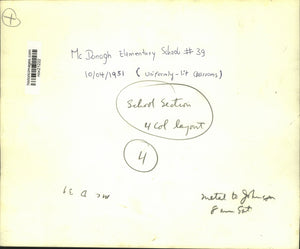 Mc Donogh Elementary School #39
10/04/1951 (Uniformly-lit Classrooms)
School Section
4 Col layout
4
Mc D 39
metal to Johnson
8 am Sat